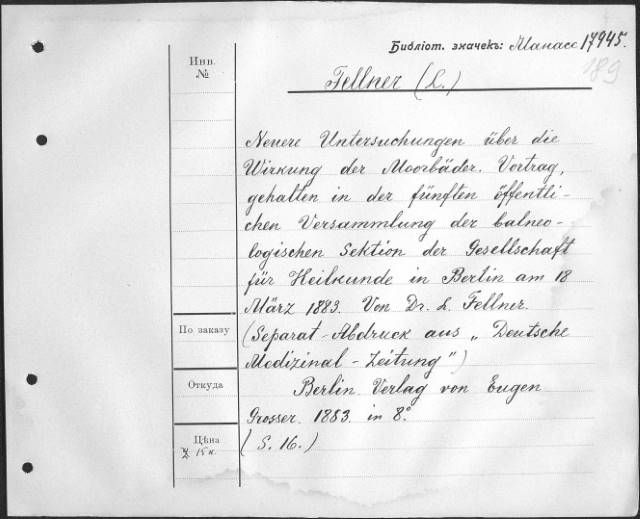 Библіот. значекъ: Манасс 17945.
189
Инв.
№
Fellner (L.)
Neuere Untersuchungen über die
Wirkung der Moorbäder. Vortrag,
gehalten in der fünften öffentli-
chen Versammlung der balneo-
logischen Sektion der Gesellschaft
für Heilkunde in Berlin am 18
März 1883. Von Dr. L. Fellner.
По заказу
(Separat-Abdruck aus „Deutsche
Medizinal-Zeitung")
Откуда
Berlin Verlag von Eugen
Grosser. 1883. in 8°.
Цѣна
15 к.
(S. 16.)